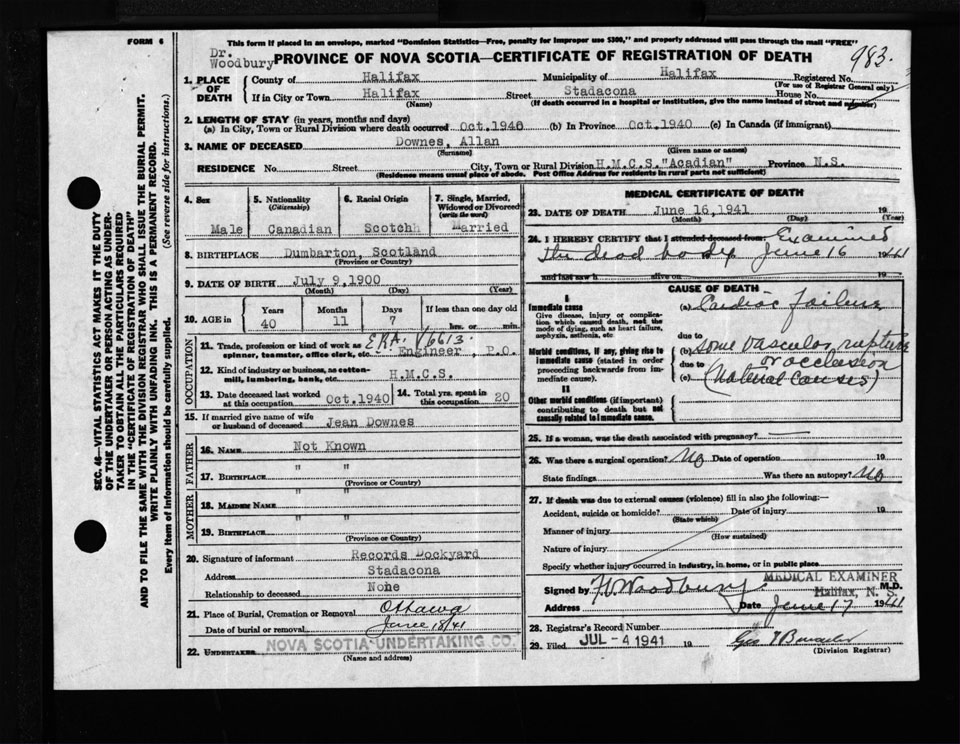 This form if placed in an envelope, marked "Dominion Statistics—Free, penalty for improper use $300," and properly addressed will pass through the mail "FREE"
FORM 6
Dr.
Woodbury
PROVINCE OF NOVA SCOTIA—CERTIFICATE OF REGISTRATION OF DEATH
983.
1. PLACE OF DEATH
County of Halifax Municipality of Halifax Registered No.
(For use of Registrar General only)
If in City or Town Halifax Street Stadacona House No.
(Name) (If death occurred in a hospital or institution, give the name instead of street and number)
2. LENGTH OF STAY (in years, months and days)
(a) In City, Town or Rural Division where death occurred Oct.1940 (b) In Province Oct.1940 (c) In Canada (if immigrant)
3. NAME OF DECEASED Downes, Allan
(Surname) (Given name or names)
RESIDENCE No. Street City, Town or Rural Division H.M.C.S."Acadian" Province N.S.
(Residence means usual place of abode. Post Office Address for residents in rural parts not sufficient)
4. Sex
Male
5. Nationality
(Citizenship)
Canadian
6. Racial Origin
Scotch
7. Single, Married, Widowed or Divorced
(write the word)
Married
8. BIRTHPLACE Dumbarton, Scotland
(Province or Country)
9. DATE OF BIRTH July 9,1900
(Month) (Day) (Year)
10. AGE in
Years Months Days If less than one day old
40 11 7 hrs. or min.
OCCUPATION
11. Trade, profession or kind of work as ERA. V6613
spinner, teamster, office clerk, etc. Engineer, P.O.
12. Kind of industry or business, as cotton-
mill, lumbering, bank, etc. H.M.C.S.
13. Date deceased last worked at this occupation Oct.1940
14. Total yrs. spent in this occupation 20
15. If married give name of wife
or husband of deceased Jean Downes
FATHER
16. NAME Not Known
17. BIRTHPLACE " "
(Province or Country)
MOTHER
18. MAIDEN NAME " "
19. BIRTHPLACE " "
(Province or Country)
20. Signature of informant Records Dockyard
Address Stadacona
Relationship to deceased None
21. Place of Burial, Cremation or Removal Ottawa
Date of burial or removal June 18/41
22. UNDERTAKER NOVA SCOTIA UNDERTAKING CO.
(Name and address)
MEDICAL CERTIFICATE OF DEATH
23. DATE OF DEATH June 16,1941 19
(Month) (Day) (Year)
24. I HEREBY CERTIFY that I attended deceased from Examined
the dead body June 16 1941
and last saw h alive on 19
CAUSE OF DEATH
I
Immediate cause
Give disease, injury or complication which caused death, not the mode of dying, such as heart failure, asphyxia, asthenia, etc.
(a) Cardiac Failure
due to
Morbid conditions, if any, giving rise to immediate cause (stated in order proceeding backwards from immediate cause).
(b) some vascular rupture
due to or occlusion
(c) (Natural Causes)
II
Other morbid conditions (if important) contributing to death but not causally related to immediate cause.
25. If a woman, was the death associated with pregnancy?
26. Was there a surgical operation? No Date of operation 19
State findings Was there an autopsy? No
27. If death was due to external causes (violence) fill in also the following:—
Accident, suicide or homicide? Date of injury 19
(State which)
Manner of injury
(How sustained)
Nature of injury
Specify whether injury occurred in industry, in home, or in public place
MEDICAL EXAMINER
Signed by Woodbury Halifax, N. S. M.D.
Address Date June 17 1941
28. Registrar's Record Number
29. Filed JUL - 4 1941 19
(Division Registrar)
SEC. 44—VITAL STATISTICS ACT MAKES IT THE DUTY
OF THE UNDERTAKER OR PERSON ACTING AS UNDER-
TAKER TO OBTAIN ALL THE PARTICULARS REQUIRED
IN THE "CERTIFICATE OF REGISTRATION OF DEATH"
AND TO FILE THE SAME WITH THE DIVISION REGISTRAR WHO SHALL ISSUE THE BURIAL PERMIT.
WRITE PLAINLY WITH UNFADING INK. THIS IS A PERMANENT RECORD.
Every item of information should be carefully supplied. (See reverse side for instructions.)